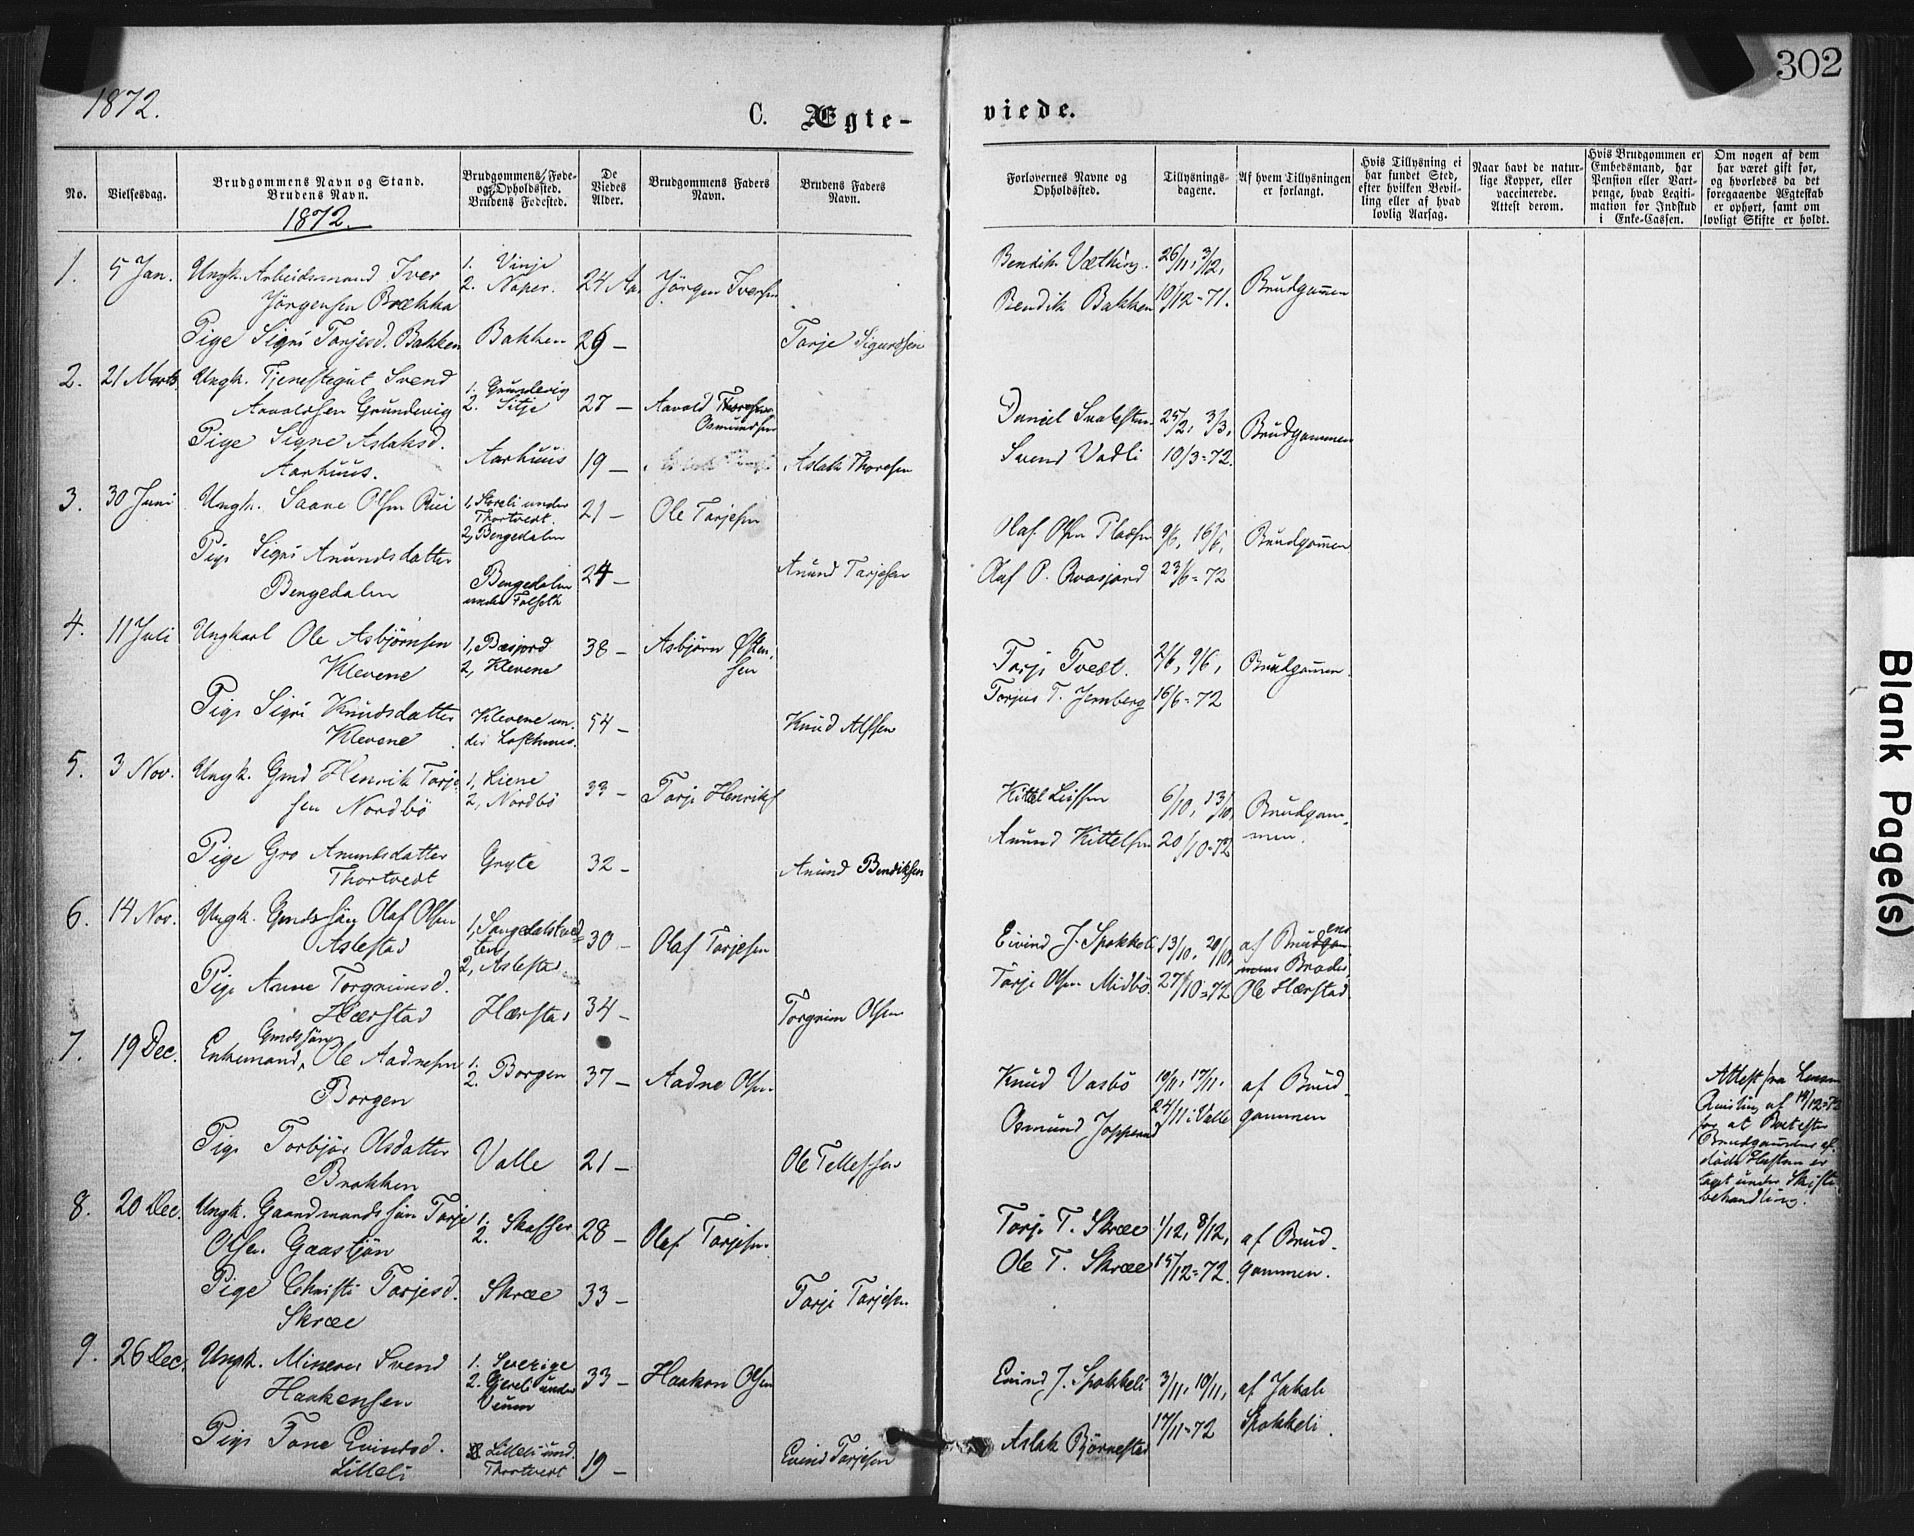 302
1872.
C. Ægte-
viede.
No.
Vielsesdag.
Brudgommens Navn og Stand.
Brudens Navn.
1872.
Brudgommens Føde-
og Opholdssted.
Brudens Fødested.
De
Viedes
Alder.
Brudgommens Faders
Navn.
Brudens Faders
Navn.
Forlovernes Navne og
Opholdssted.
Tillysnings-
dagene.
Af hvem Tillysningen
er forlangt.
Hvis Tillysning ei
har fundet Sted,
efter hvilken Bevil-
ling eller af hvad
lovlig Aarsag.
Naar havt de natur-
lige Kopper, eller
vaccinerede.
Attest derom.
Hvis Brudgommen er
Embedsmand, har
Pension eller Vart-
penge, hvad Legiti-
mation for Indskud
i Enke-Cassen.
Om nogen af dem
har været gift før,
og hvorledes da det
foregaaende Ægteskab
er ophørt, samt om
lovligt Skifte er holdt.
1. 5 Jan. Ungk. Arbeidsmand Iver
Jörgensen Brækka
1. Vinje
2. Naper.
24 Aar Jörgen Iversen
Bendik Væthing. 26/11, 3/12,
Bendik Bakken 10/12-71.
Brudgommen
Pige Sigri Torjesd. Bakken Bakken 26 — Torje Sigurdsen
2. 21 Marts Ungk. Tjenestegut Svend
Aavoldsen Grundevig
1. Grundevig
2. Sitje
27 — Aavold Thoresen
Osmundsen
Daniel 25/2, 3/3,
Svend Vadli 10/3-72.
Brudgommen
Pige Signe Aslaksd.
Aarhuus.
Aarhuus 19 — Aslak Thoresen
3. 30 Juni Ungk. Saave Olsen Rui
1, Storeli under
Thortvedt.
2, Bengedalen
21 — Ole Torjesen
Olaf Olsen Pladsen 9/6, 16/6,
Olaf P. Rvasjord 23/6-72
Brudgommen
Pige Sigri Anundsdatter
Bengedalen
Bengedalen
under Folseth
24 — Anund Torjesen
4. 11 Juli Ungkarl Ole Asbjörnsen
Klevene
1, Bæsjord
2, Klevene
38 — Asbjörn Østen-
sen
Torje Tvedt. 2/6, 9/6,
Torjus T. Jernberg 16/6-72
Brudgommen.
Pige Sigri Knudsdatter
Klevene
Klevene un-
der Lofthuus.
54 — Knud Alfsen
5. 3 Nov. Ungk. Gmd Henrik Torje-
sen Nordbö
1, Liene
2, Nordbö
33 — Torje Henriks
Kittel Leifsen 6/10, 13/10,
Anund Kittelsen 20/10-72
Brudgom-
men.
Pige Gro Anundsdatter
Thortvedt
Gryte 32 — Anund Bendiksen
6. 14 Nov. Ungk. Gmdssön Olaf Olsen
Aslestad
2, Aslestad
30 — Olaf Torjesen
Eivind J. Spokkeli 13/10, 20/10,
Torje Olsen Midbö. 27/10-72
af Brudens
Broder
Ole Hærstad
Pige Anne Torgrimsd.
Hærstad
Hærstad 34 — Torgrim Olsen
7. 19 Dec. Gmdssön
Enkemand, Ole Aadnesen
Borgen
1.
2. Borgen
37 — Aadne Olsen
Knud Vasbö 10/11, 17/11,
Osmund 24/11 i Valle
af Brud-
gommen
Attest fra
af 14/12-72
for at Boet efter
Brudgommens af-
døde Hustru er
tagt under Skifte-
behandling.
Pige Torbjör Olsdatter
Brokken
Valle 21 — Ole Tellefsen
8. 20 Dec. Ungk. Gaardmandssön Torje
Olsen Gaastjön
1.
2. Skaffer
28 — Olaf Torjesen.
Torje T. Skræe 1/12, 8/12,
Ole T. Skræe 15/12-72.
af Brud-
gommen.
Pige Christi Torjesd.
Skræe
Skræe 33 — Torje Torjesen
9. 26 Dec. Ungk. Minerer Svend
Haakensen
1. Sverige
2. Gjereli under
Veum
33 — Haakon Olsen
Eivind J. Spokkeli 3/11, 10/11,
Aslak Björnestad 17/11-72
af Jakob
Spokkeli.
Pige Tone Eivindsd.
Lilleli
Lilleli und.
Thortvedt
19 — Eivind Torjesen
Blank Page(s)